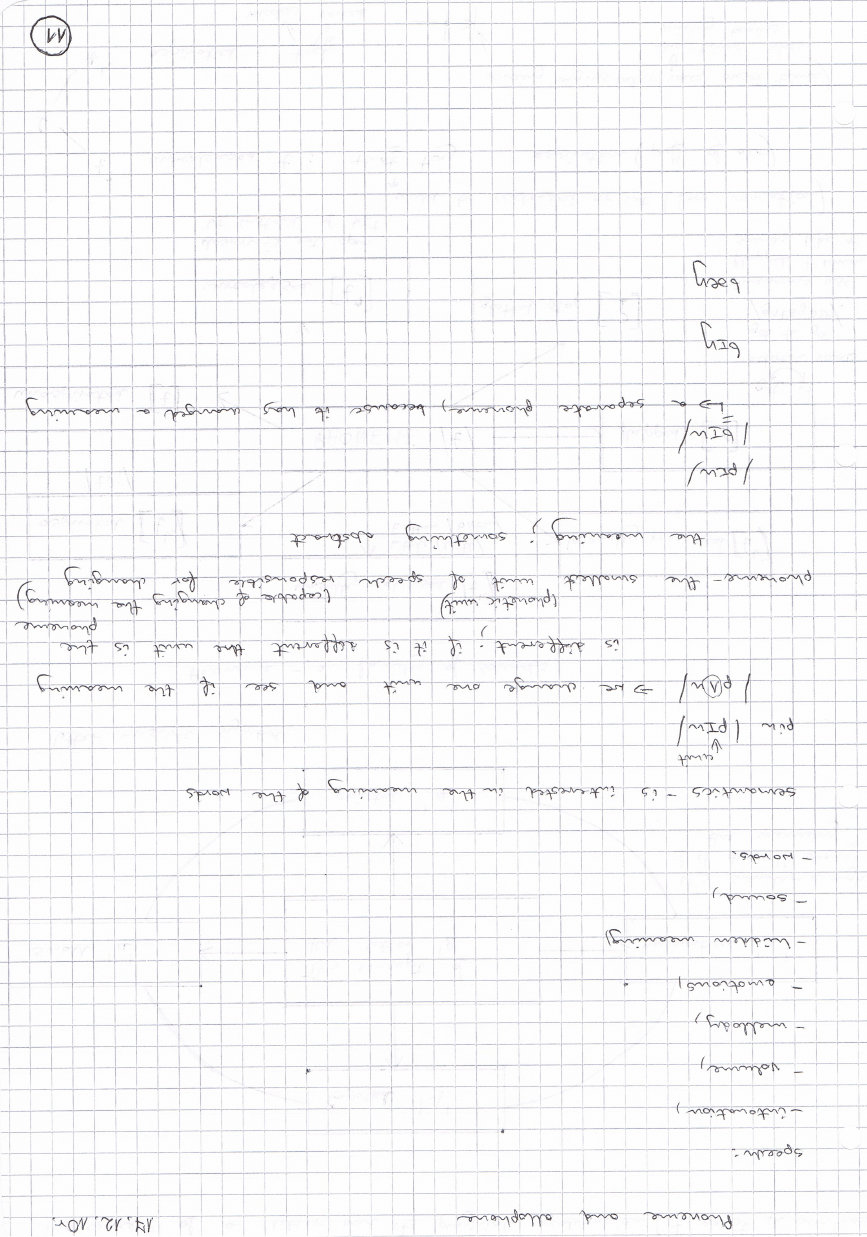 Phoneme and allophone 17.12.10r.
speech:
- intonation,
- volume,
- mellody,
- emotions,
- hidden meaning,
- sound,
- words.
semantics - is interested in the meaning of the words
unit
↓
pin /pIn/
/pΛn/ → we change one unit and see if the meaning
is different; if it is different the unit is the phoneme
(phonetic unit) (capable of changing the meaning)
phoneme - the smallest unit of speech responsible for changing
the meaning; something abstract
/pIn/
/bIn/
↳ a separate phoneme, because it has changed a meaning
bIŋ
bæŋ
11